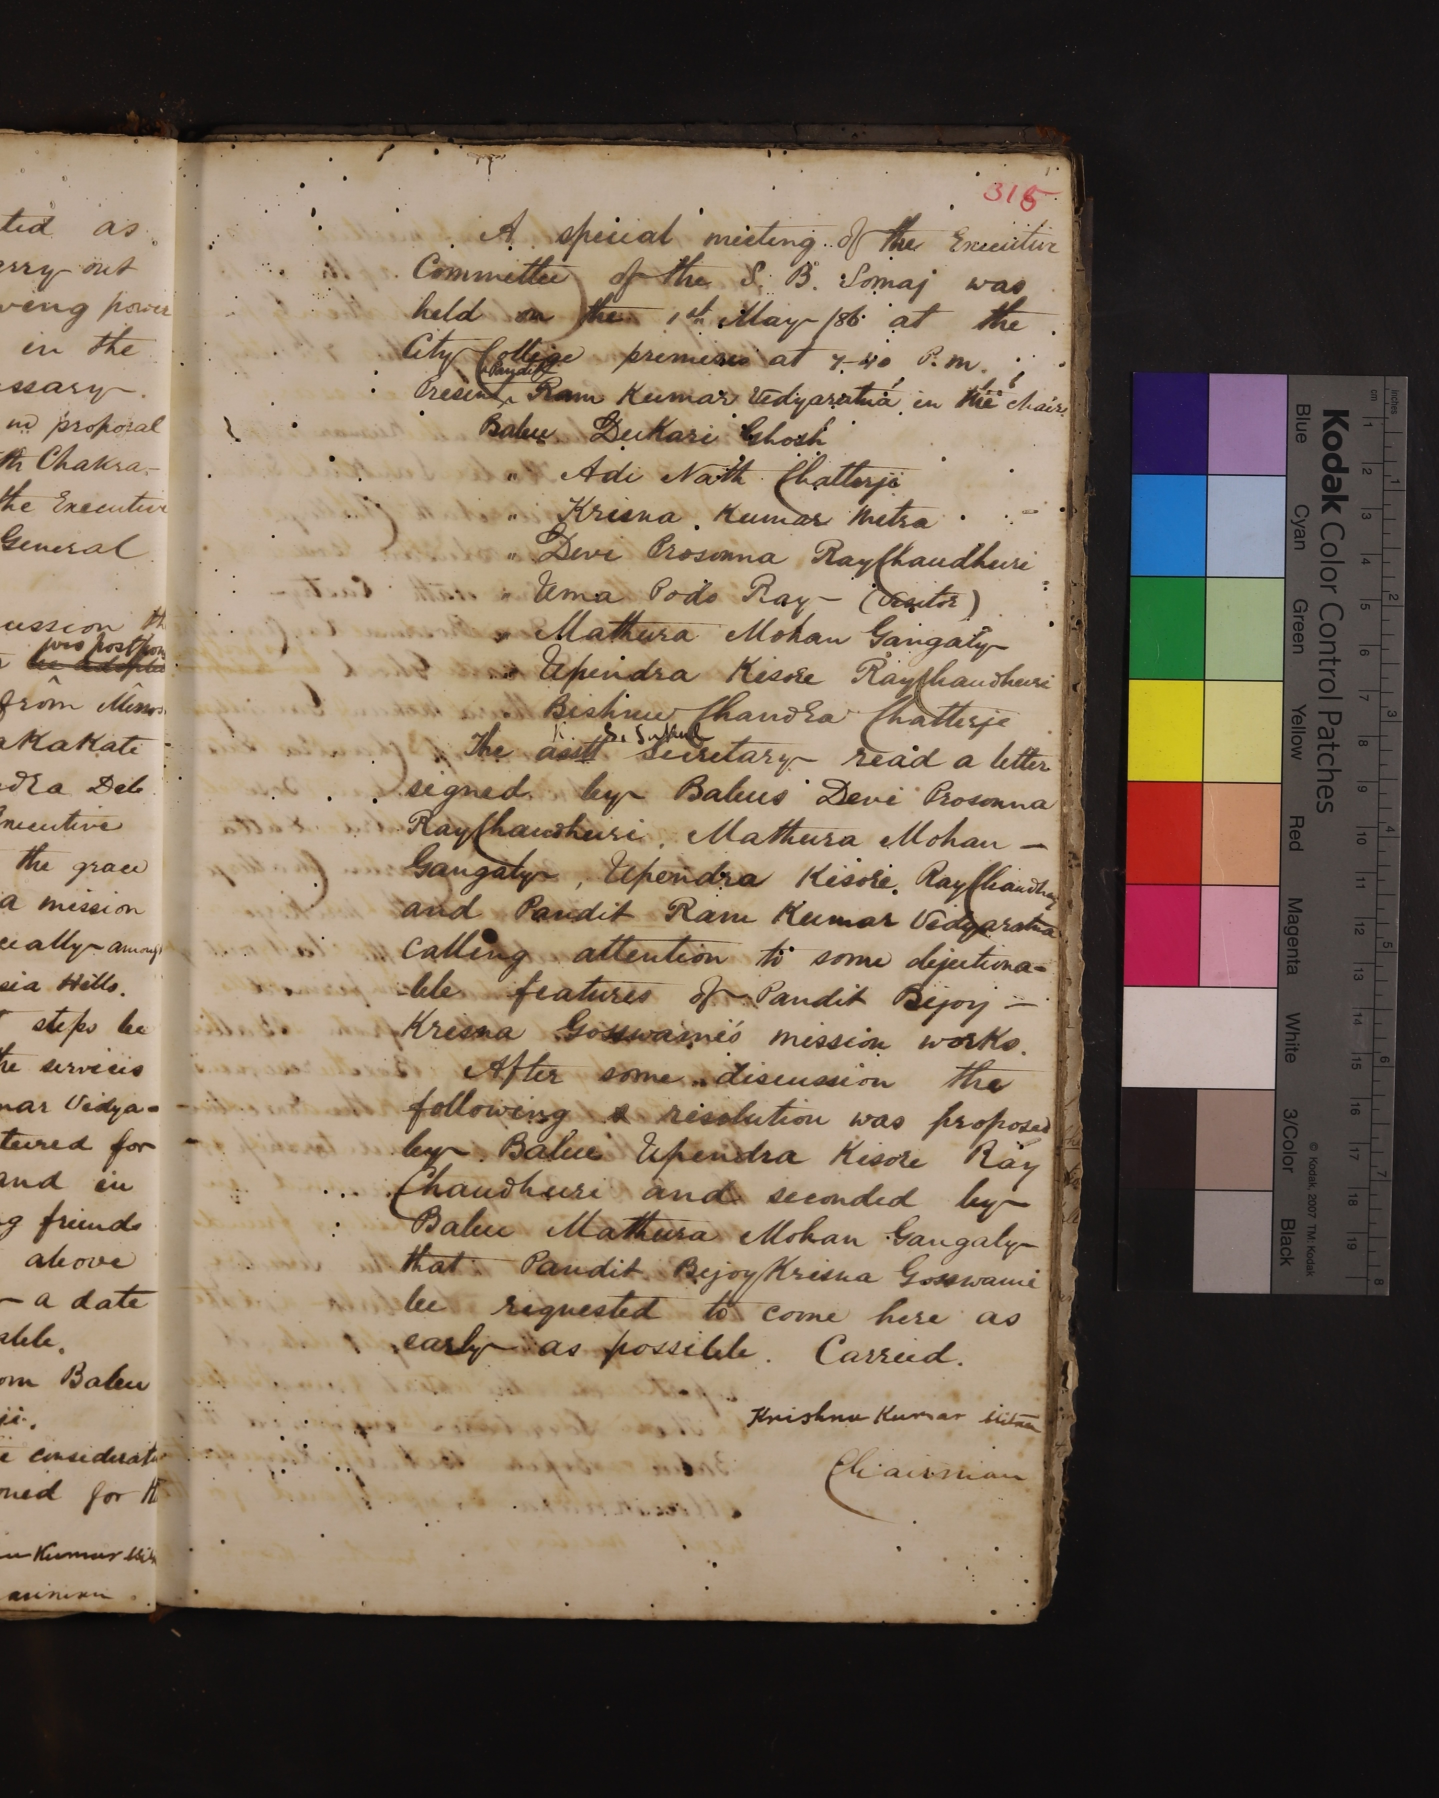 ted as
erry out
ving power
in the
ssary.
no proposal
th Chakra-
the Executive
General
ussion th
was postpon
be adopted
from
akakati
dra Deb
Executive
the grace
a mission
cially among
sia Hills.
steps be
the services
mar Vidya-
tured for
and in
ng friends
above
a date
able.
om Babu
ji.
e considerati
oned for th
Kumar Mit
airman
315
A special meeting of the Executive
Committee of the S. B. Somaj was
held on the 1st May /86 at the
City College premises at 7-40 P.m.
Pandit
Present Ram Kumar Vidyaratna in the chair
Babu Dukari Ghosh
" Adi Nath Chatterji
" Krisna Kumar Mitra
" Devi Prosonna Ray Chaudhuri
" Uma Podo Ray - (Visitor)
" Mathura Mohan Gangaly
" Upendra Kisore Ray Chaudhuri
Bishnu Chandra Chatterje
The asstt Secretary read a letter
signed by Babus Devi Prosonna
Ray Chaudhuri, Mathura Mohan -
Gangaly, Upendra Kisore, Ray Chaudhuri
and Pandit Ram Kumar Vidyaratna
calling attention to some objectiona-
-ble features of Pandit Bijoy -
Krisna Gosswami's mission works.
After some discussion the
following resolution was proposed
by Babu Upendra Kisore Ray
Chaudhuri and seconded by
Babu Mathura Mohan Gangaly
that Pandit Bejoy Krisna Gosswami
be requested to come here as
early as possible. Carried.
Krishna Kumar Mitra
Chairman
Kodak Color Control Patches
Blue Cyan Green Yellow Red Magenta White 3/Color Black
© Kodak, 2007 TM: Kodak
inches 1 2 3 4 5 6 7 8
cm 1 2 3 4 5 6 7 8 9 10 11 12 13 14 15 16 17 18 19